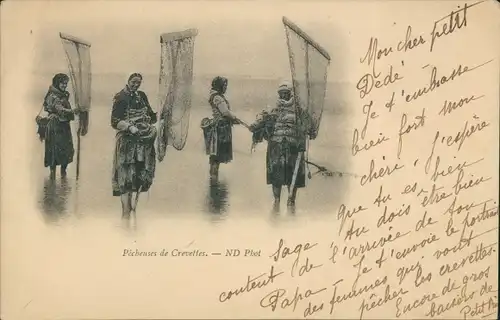 Pêcheuses de Crevettes. — ND Phot
Mon cher petit
Dédé
Je t'embrasse
bien fort mon
chéri, j'espère
que tu es bien
Sage Tu dois être bien
content de l'arrivée de ton
Papa — Je t'envoie le portrait
des femmes qui vont
pêcher les crevettes.
Encore de gros
baisers de
Petit